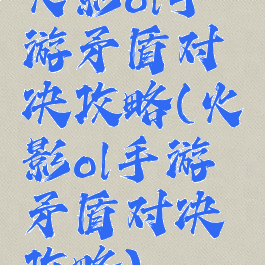 火影ol手
游矛盾对
决攻略(火
影ol手游
矛盾对决
攻略)